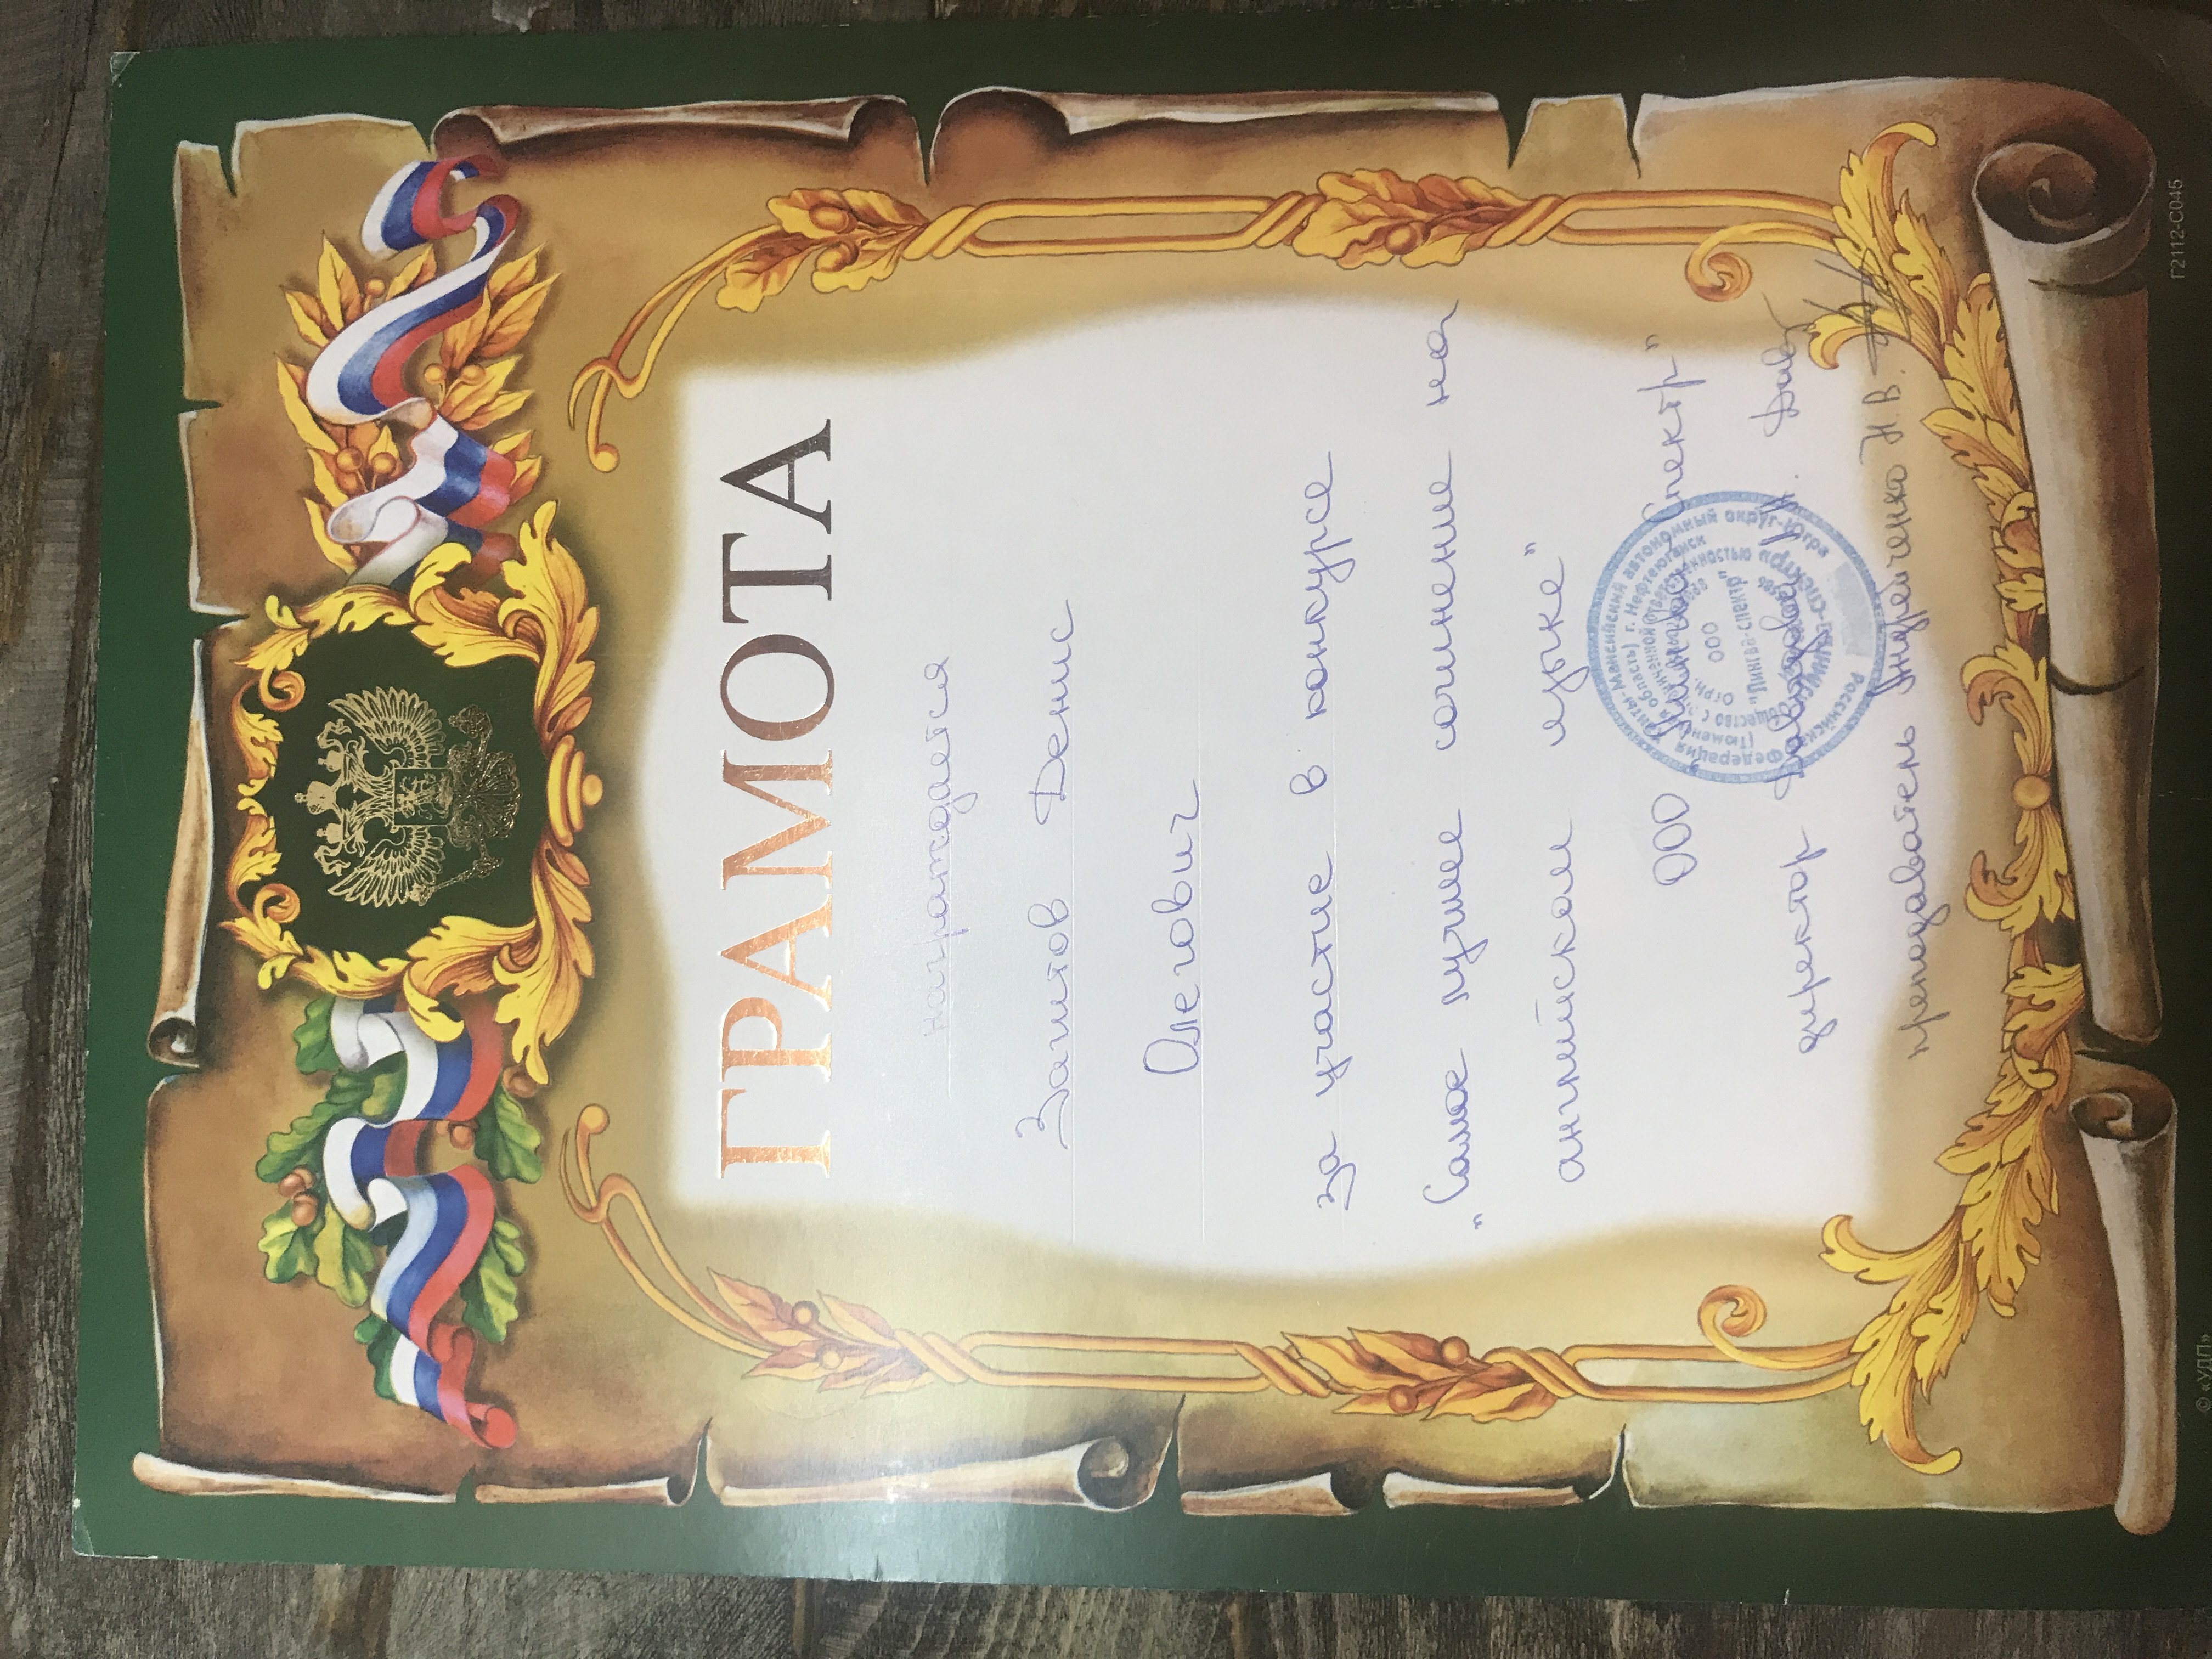 ГРАМОТА
награждается
Загитов Денис
Олегович
за участие в конкурсе
„Самое лучшее сочинение на
английском языке"
ООО „Лингва-Спектр"
директор Давыдова Дав
преподаватель Андрейченко Н.В.
Российская Федерация Ханты-Мансийский автономный округ-Югра
(Тюменская область) г. Нефтеюганск
Общество с ограниченной ответственностью
ООО
"Лингва-спектр"
Г2112-С045
© «УДП»